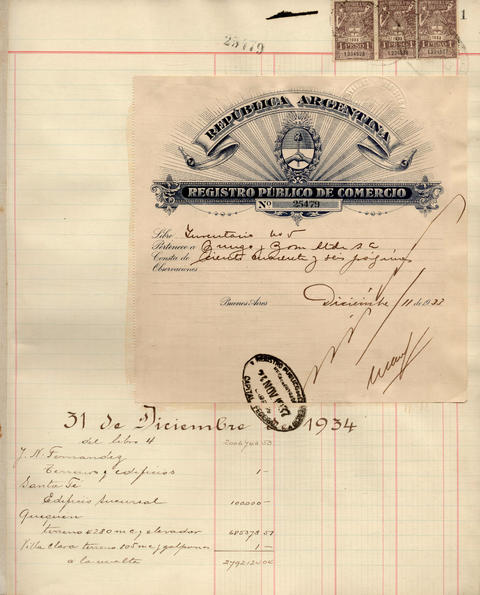 1
25479
1933 1933 1933
1 PESO 1 1 PESO 1 1 PESO 1
REPÚBLICA ARGENTINA
REGISTRO PÚBLICO DE COMERCIO
Nº 25479
Libro Inventario No V
Pertenece a Bunge y Born Ltda S.C.
Consta de Ciento cuarenta y seis páginas
Observaciones
Buenos Aires Diciembre 11 de 1933
REGISTRO PUBLICO
CAPITAL FEDERAL
31 de Diciembre 1934
del libro 4
J. N. Fernandez
Terrenos y edificios 1 —
Santa Fé
Edificio Sucursal 100000 —
Quequen
terreno 5280 mc y elevador 685378 51
Villa Clara terreno 105 mc y galpones 1 —
a la vuelta